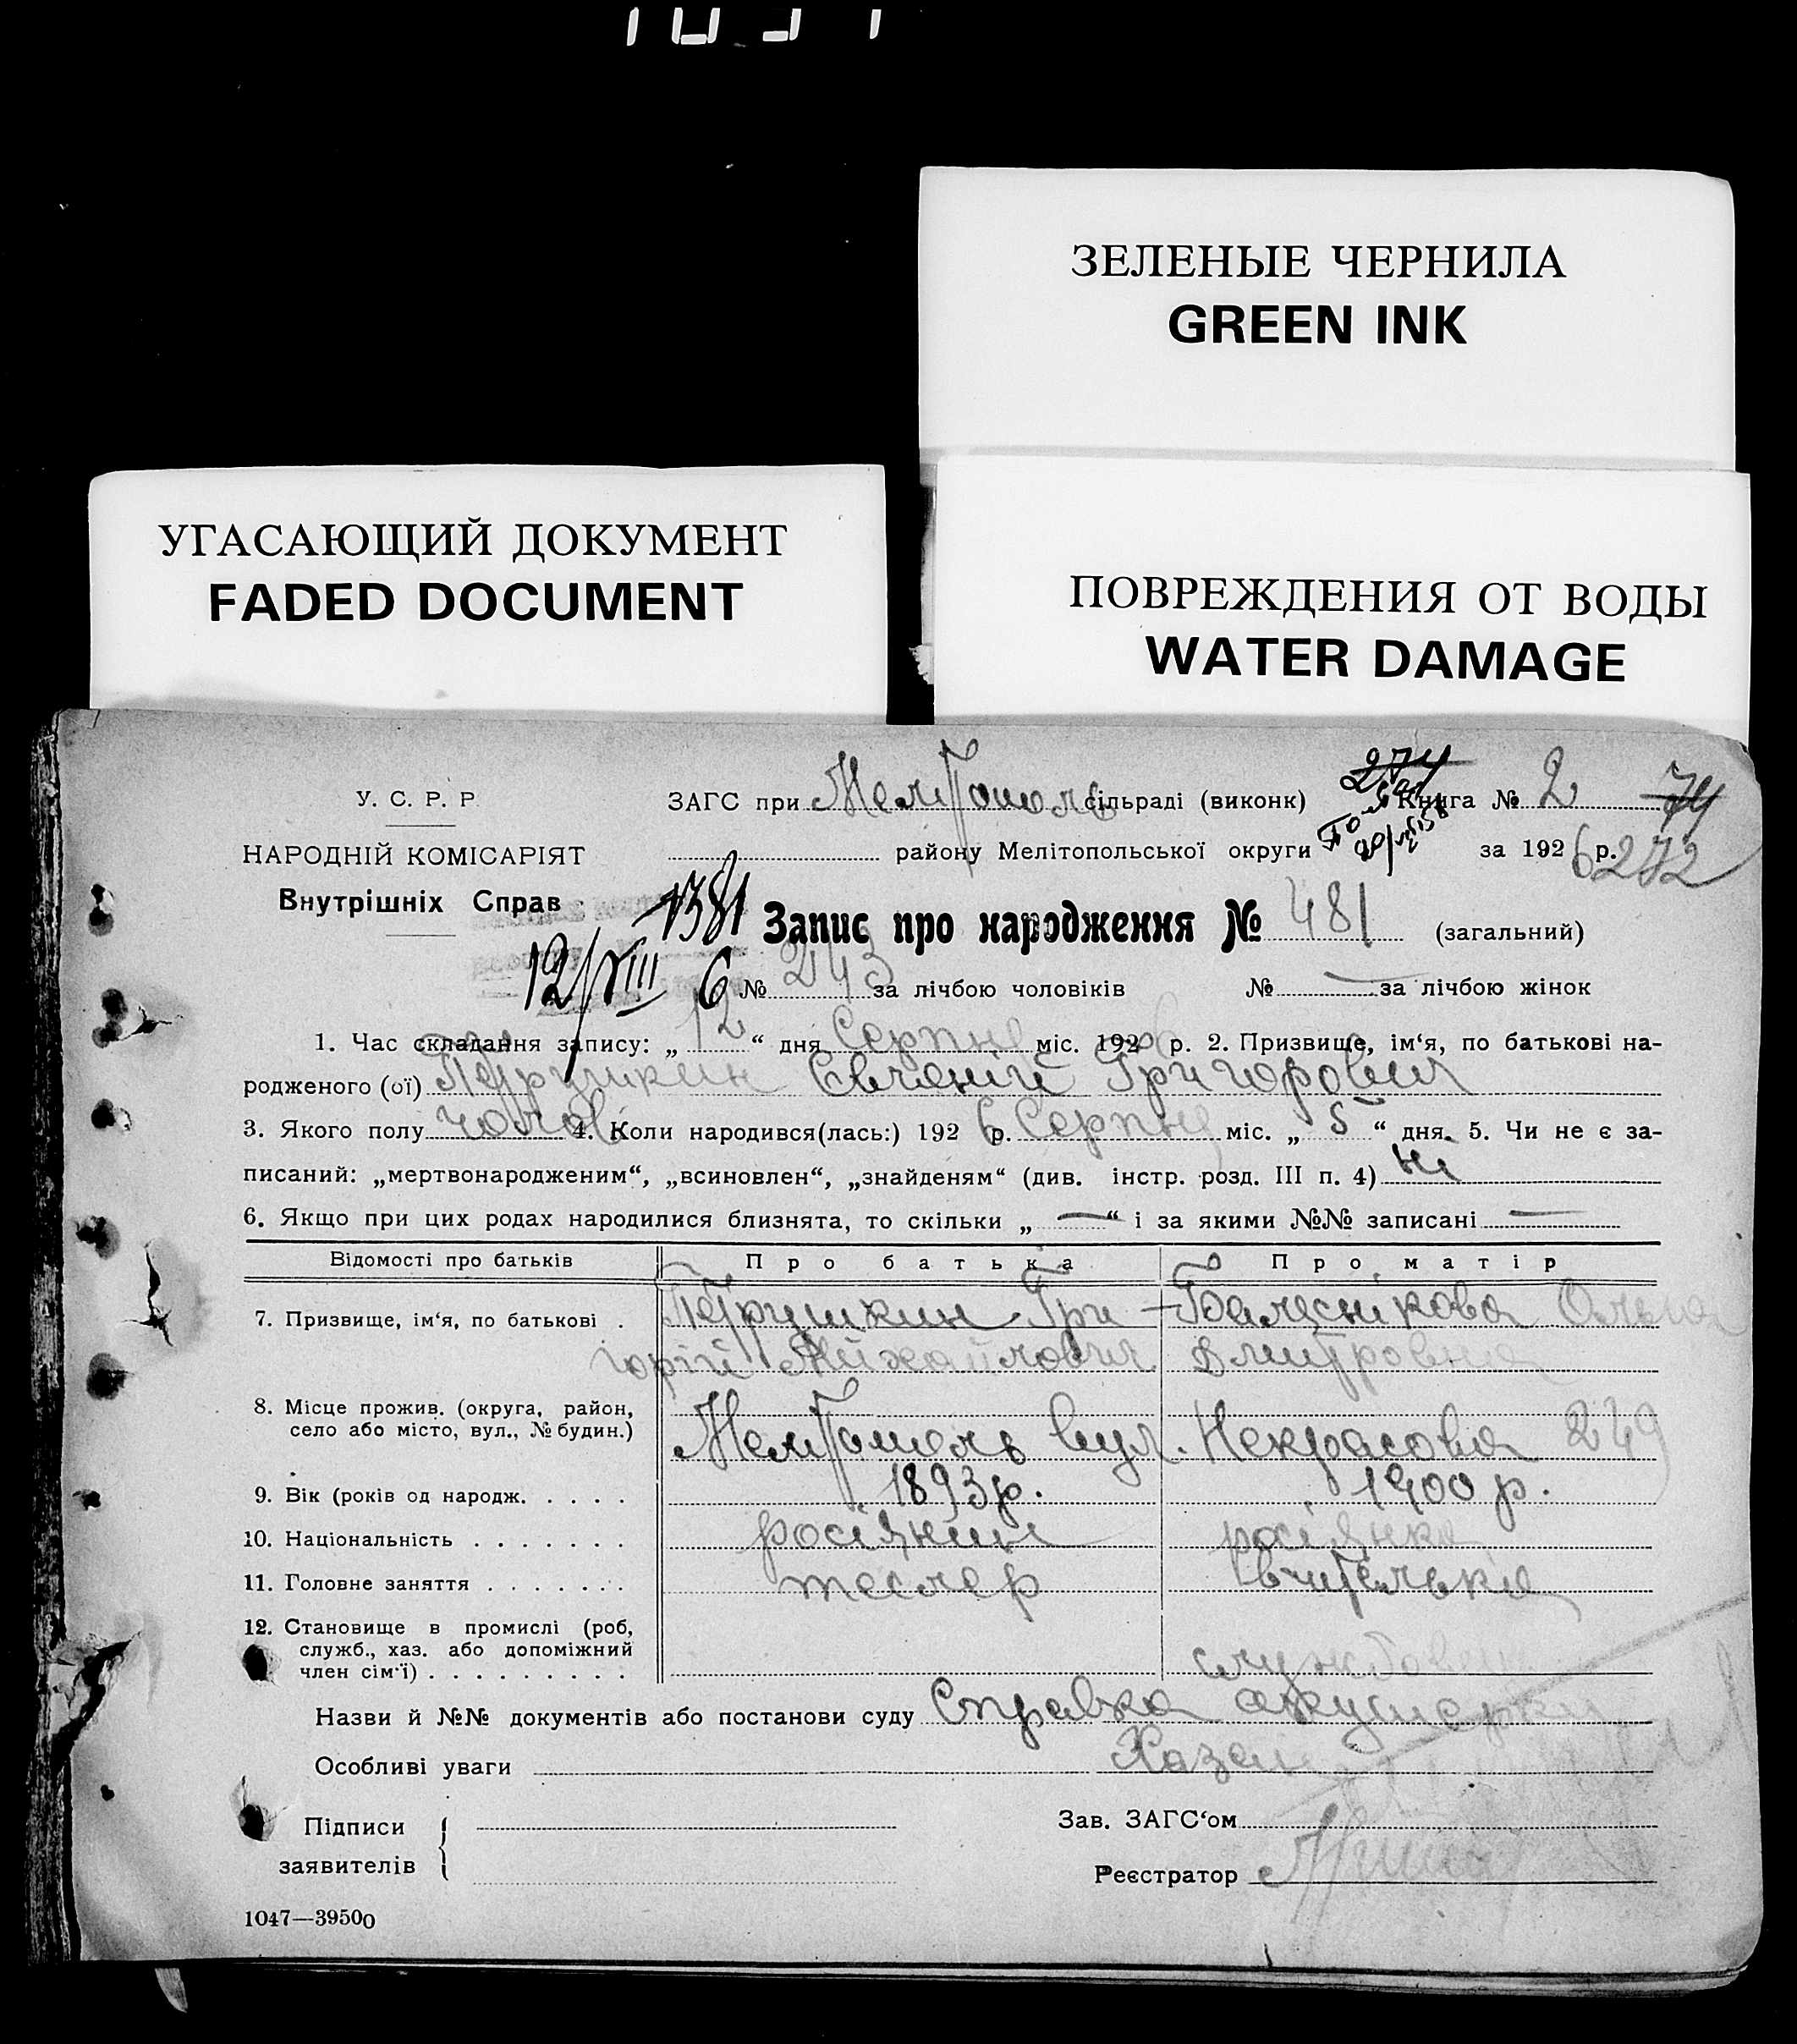 ЗЕЛЕНЫЕ ЧЕРНИЛА
GREEN INK
УГАСАЮЩИЙ ДОКУМЕНТ
FADED DOCUMENT
ПОВРЕЖДЕНИЯ ОТ ВОДЫ
WATER DAMAGE
274
У. С. Р. Р.
ЗАГС при Мелітополь сільраді (виконк) Книга № 2 74
НАРОДНІЙ КОМІСАРІЯТ
району Мелітопольської округи за 1926 р. 272
Внутрішніх Справ
1381 Запис про народження № 481 (загальний)
12/VIII 6 № 243 за лічбою чоловіків № — за лічбою жінок
1. Час складання запису: „ 12 “ дня Серпня міс. 1926 р. 2. Призвище, ім‘я, по батькові на-
родженого (ої) Петрушкин Євгеній Григорович
3. Якого полу чолов 4. Коли народився(лась:) 1926 р. Серпня міс. „ 5 “ дня. 5. Чи не є за-
писаний: „мертвонародженим“, „всиновлен“, „знайденям“ (див. інстр. розд. III п. 4) ні
6. Якщо при цих родах народилися близнята, то скільки „ — “ і за якими №№ записані —
Відомості про батьків Про батька Про матір
7. Призвище, ім‘я, по батькові . Петрушкин Гри- Ольга
горій Михайлович Дмитровна
8. Місце прожив. (округа, район,
село або місто, вул., № будин.) Мелітополь вул. Некрасова 249
9. Вік (років од народж. . . . . 1893 р. 1900 р.
10. Національність . . . . . . . росіянин росіянка
11. Головне заняття . . . . . . . тесляр вчителька
12. Становище в промислі (роб,
служб., хаз. або допоміжний
член сім‘ї) . . . . . . . . . службовець
Назви й №№ документів або постанови суду Справка акушерки
Особливі уваги Хазан
Підписи
заявителів
Зав. ЗАГС‘ом
Реєстратор
1047—39500